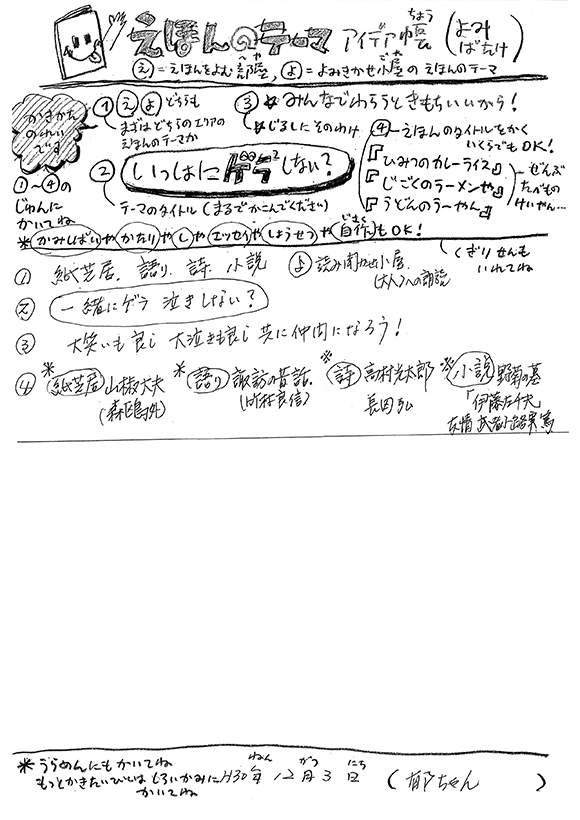 えほんのテーマ アイデア帳（よみばたけ）
ちょう
え＝えほんをよむ部屋、よ＝よみきかせ小屋のえほんのテーマ
へや
ごや
かきかたのれいです
①〜④のじゅんにかいてね
① え よ どちらも
まずはどちらのエリアのえほんのテーマか
② いっしょにゲラゲラしない？
テーマのタイトル（まるでかこんでください）
③ みんなでわらうときもちいいから！
じるしにそのわけ
④ーえほんのタイトルをかく
いくらでもOK！
『ひみつのカレーライス』
『じごくのラーメンや』
『うどんのうーやん』
ぜんぶたべものけいやん…
*かみしばいやかたりやしやエッセイやしょうせつや自作もOK！
じさく
くぎりせんもいれてね
① 紙芝居、語り、詩、小説 よ 読み聞かせ小屋
（大人への朗読
② 一緒にゲラ泣きしない？
③ 大笑いも良し 大泣きも良し 共に仲間になろう！
④ *紙芝居 山椒大夫
（森鴎外）
*語り 諏訪の昔話
※詩 高村光太郎
長田弘
※小説 野菊の墓
「伊藤左千夫
友情 武者小路実篤
*うらめんにもかいてね
もっとかきたいひとはしろいかみにかいてね
H30年12月3日（郁ちゃん）
ねん がつ にち